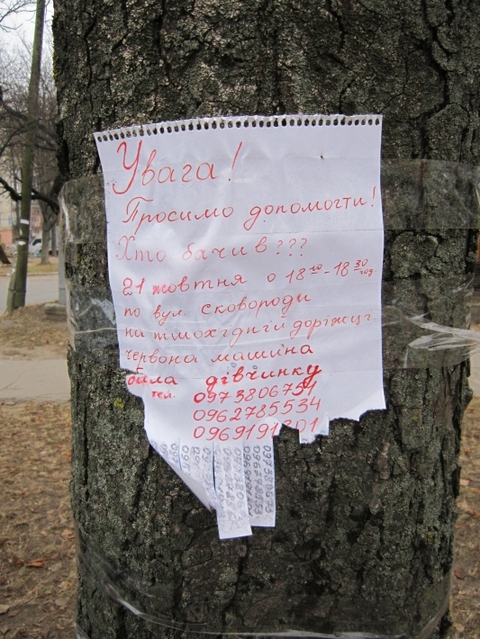 Увага!
Просимо допомогти!
Хто бачив???
21 жовтня о 18 20 - 18 30 год
по вул. Сковороди
на пішохідній доріжці
червона машина
била дівчинку
тел. 0973806754
0962785534
0969191301